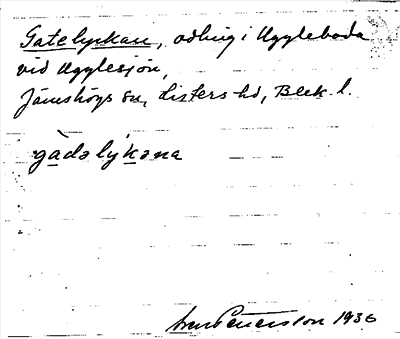 Gatelyckan, odling i Uggleboda
vid Ugglesjön,
Jämshögs sn, Listers hd, Blek. l.
gàdəlýkəna
Petersson 1936